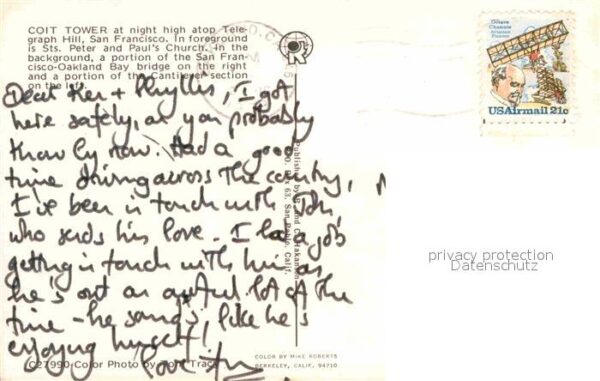 COIT TOWER at night high atop Tele-
graph Hill, San Francisco. In foreground
is Sts. Peter and Paul's Church. In the
background, a portion of the San Fran-
cisco-Oakland Bay bridge on the right
and a portion of the Cantilever section
on the left.
Dear Ken + Phyllis, I got
here safely, as you probably
know by now. Had a good
time driving across the country,
I've been in touch with John,
who sends his love. I had a job
getting in touch with him as
he's out an awful lot of the
time - he sounds like he's
enjoying himself!
love
C27990-Color Photo by Tracy
Published by
San Pablo, Calif.
COLOR BY MIKE ROBERTS
BERKELEY, CALIF. 94710
Octave
Chanute
Aviation
Pioneer
USAirmail 21c
privacy protection
Datenschutz